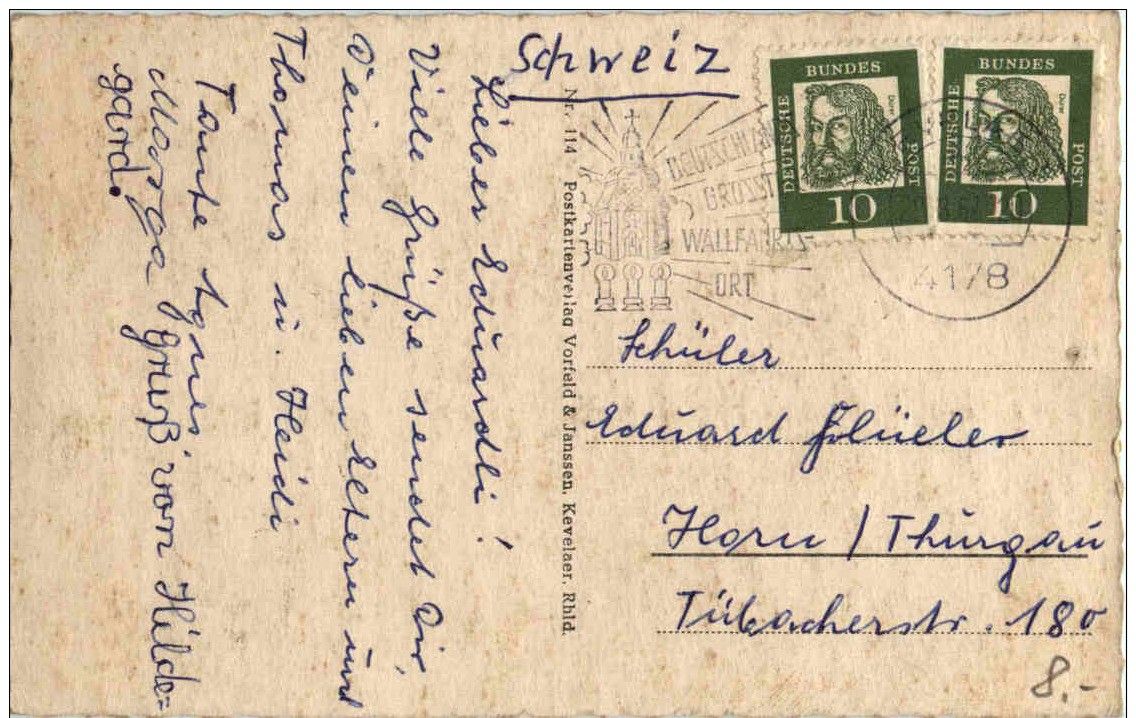 Schweiz
Lieber Eduardli!
Viele Grüße sendet Dir,
Deinen lieben Eltern und
Thomas u. Heidi
Tante Agnes
Gruß von Hilde=
gard.
Nr. 114 Postkartenverlag Vorfeld & Janssen, Kevelaer, Rhld.
WALLFAHRTS-
ORT
DEUTSCHE BUNDES POST
Dürer
10
DEUTSCHE BUNDES POST
Dürer
10
4178
Schüler
Eduard Flüeler
Horn / Thurgau
Tübacherstr. 180
8.-